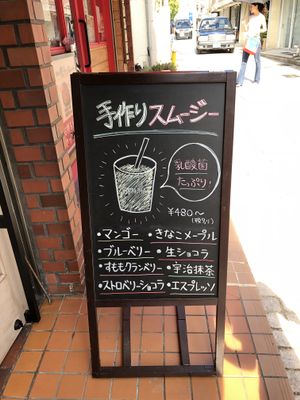 手作りスムージー
乳酸菌
たっぷり!
¥480〜
(税別)
・マンゴー ・きなこメープル
・ブルーベリー ・生ショコラ
・すももクランベリー ・宇治抹茶
・ストロベリーショコラ ・エスプレッソ